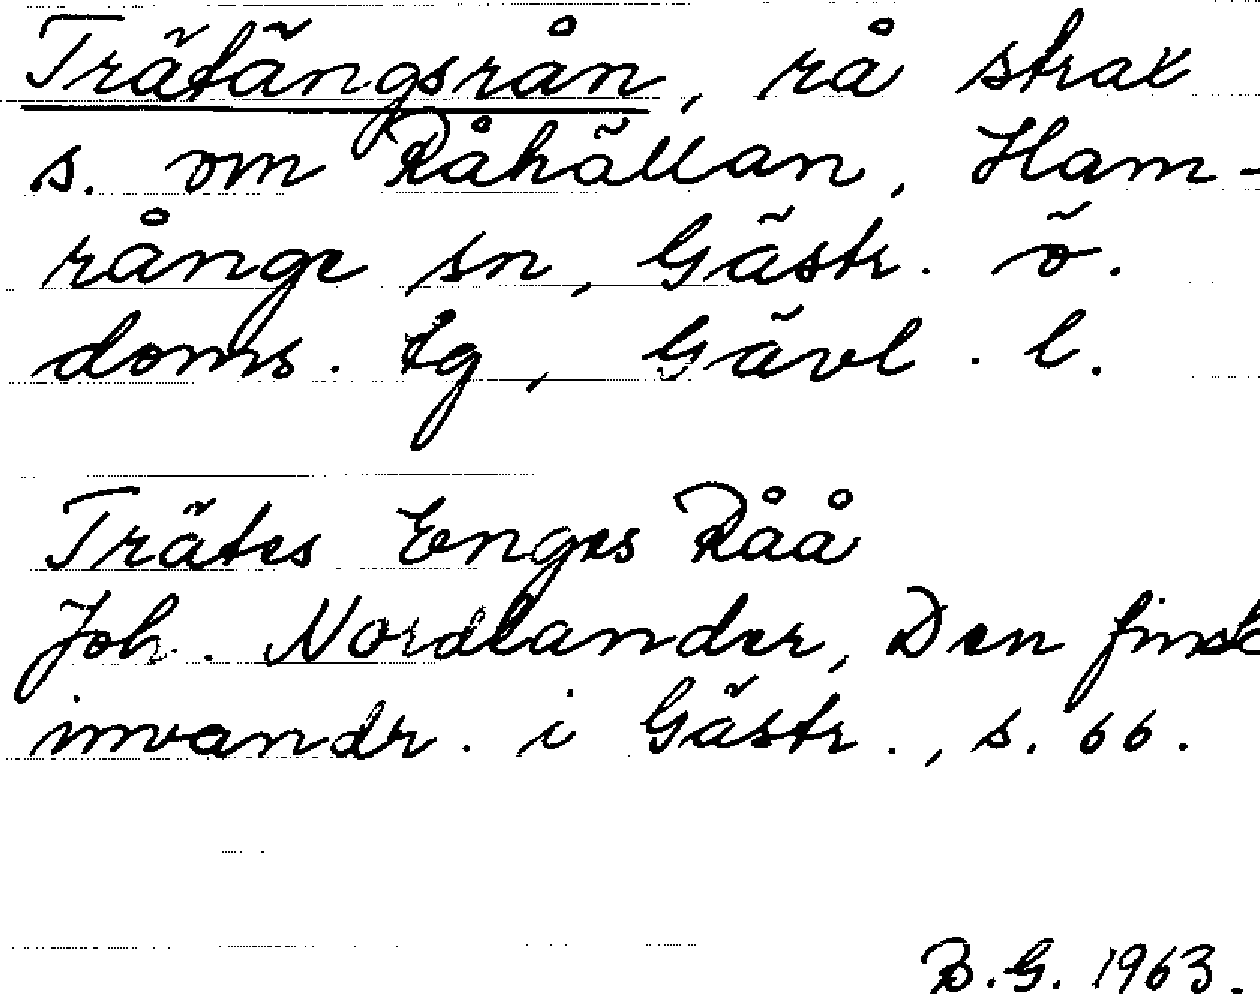 Trätängsrån, rå strax
s. om Råhällan, Ham-
rånge sn, Gästr. ö.
doms. tg, Gävl. l.
Trätes Enges Råå
Joh. Nordlander, Den finsk
invandr. i Gästr., s. 66.
B.G. 1963.